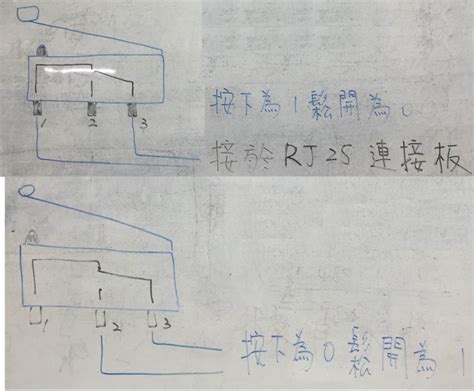 1 2 3
按下為 1 鬆開為 0
接於 RJ25 連接板
1 2 3
按下為 0 鬆開為 1